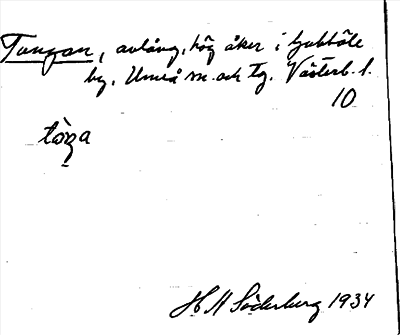 Tungan, avlång, hög åker i Ljubböle
by, Umeå sn. och tg. Västerb. l.
10
tòŋa
H A Söderburg 1934